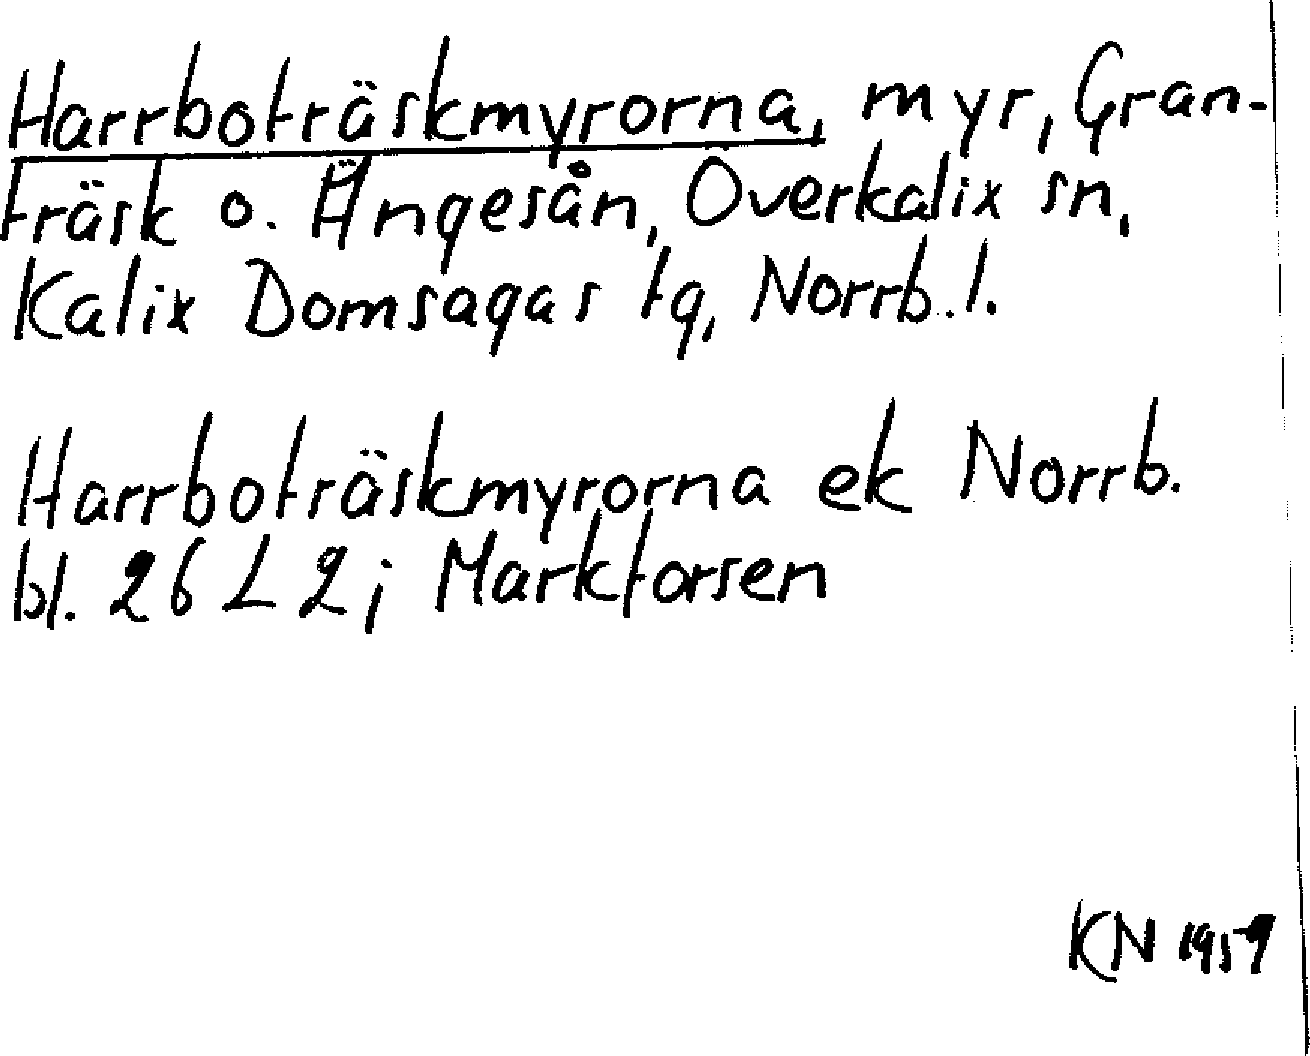 Harrboträskmyrorna, myr, Gran-
träsk o. Ängesån, Överkalix sn,
Kalix Domsagas tg, Norrb. l.
Harrboträskmyrorna ek Norrb.
bl. 26 L 2 j Markforsen
KN 1959